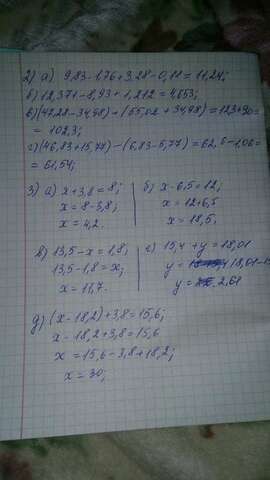 2) а) 9,83-1,76+3,28-0,11=11,24;
б) 12,371-8,93+1,212=4,653;
в)(47,28-34,98)+(55,02+34,98)=12,3+90=
= 102,3;
г)(46,83+15,77)-(6,83-5,77)=62,6-1,06=
= 61,54;
3) а) х+3,8=8;
х=8-3,8;
х=4,2.
б) х-6,5=12,
х=12+6,5
х=18,5.
в) 13,5-х=1,8;
13,5-1,8=х;
х=11,7.
г) 15,4+у=18,01
у= 18,01-1
у= 2,61
д) (х-18,2)+3,8=15,6;
х-18,2+3,8=15,6
х=15,6-3,8+18,2;
х=30;